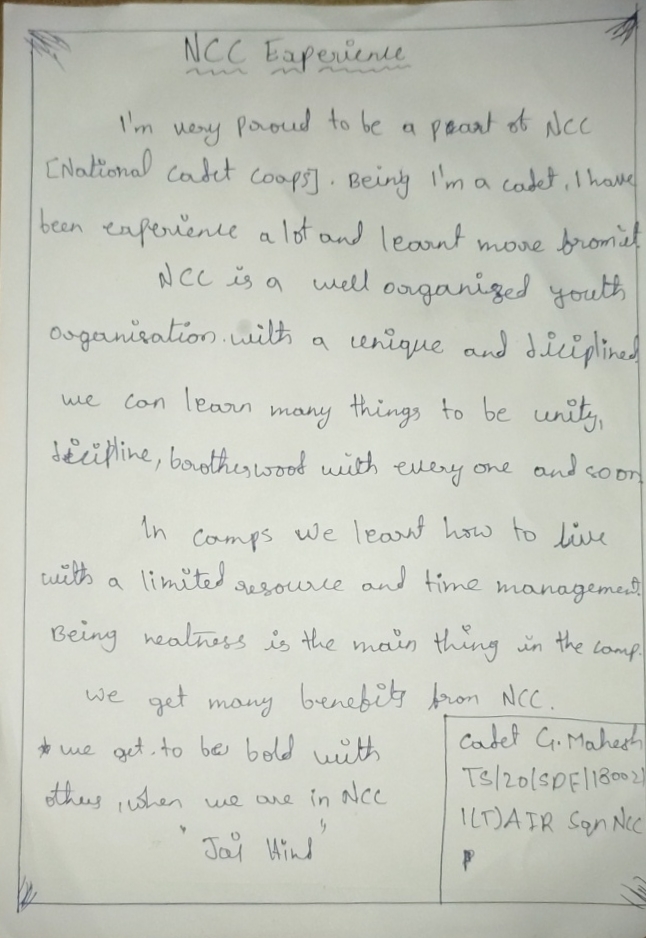 NCC Experience
I'm very proud to be a part of NCC
[National Cadet Coops]. Being I'm a cadet, I have
been experience a lot and learnt more from it.
NCC is a well organized youth
organisation. with a unique and diciplined
we can learn many things to be unity,
dicipline, brotherwood with every one and so on
In camps we learnt how to live
with a limited resource and time management.
Being neatness is the main thing in the camp.
we get many benefits from NCC.
* we get to be bold with
others, when we are in NCC
"Jai Hind"
Cadet G. Mahesh
TS/20/SDF/18002
1(T) AIR Sqn NCC